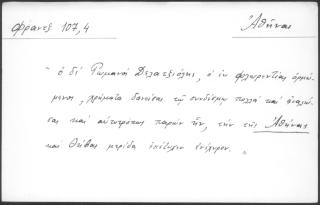 Φραντζ 107,4
Ἀθῆναι
" ὁ δὲ Ῥωμανὴ Δελατζιόλης, ὁ ἐκ Φλωρεντίας ὁρμώ-
μενος, χρήματα δανείσας τῷ συνδέσμῳ πολλὰ καὶ ἀναλώ-
σας καὶ αὐτοτρόπως παρὼν ἦν, τὴν τῆς Ἀθήνας
καὶ Θήβας μερίδα ἐπέτυχεν ἐνέχυρον. "